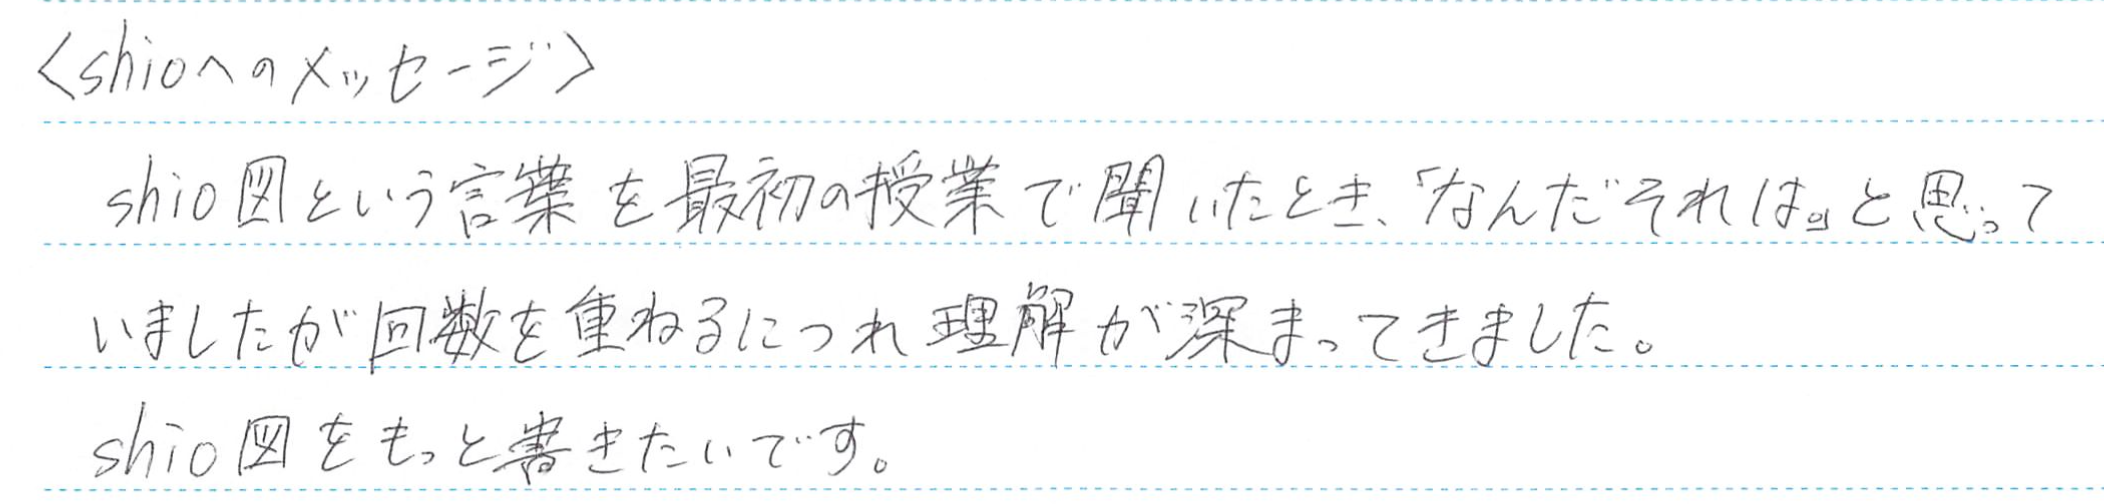 〈shioへのメッセージ〉
shio図という言葉を最初の授業で聞いたとき、「なんだそれは。」と思って
いましたが回数を重ねるにつれ理解が深まってきました。
shio図をもっと書きたいです。